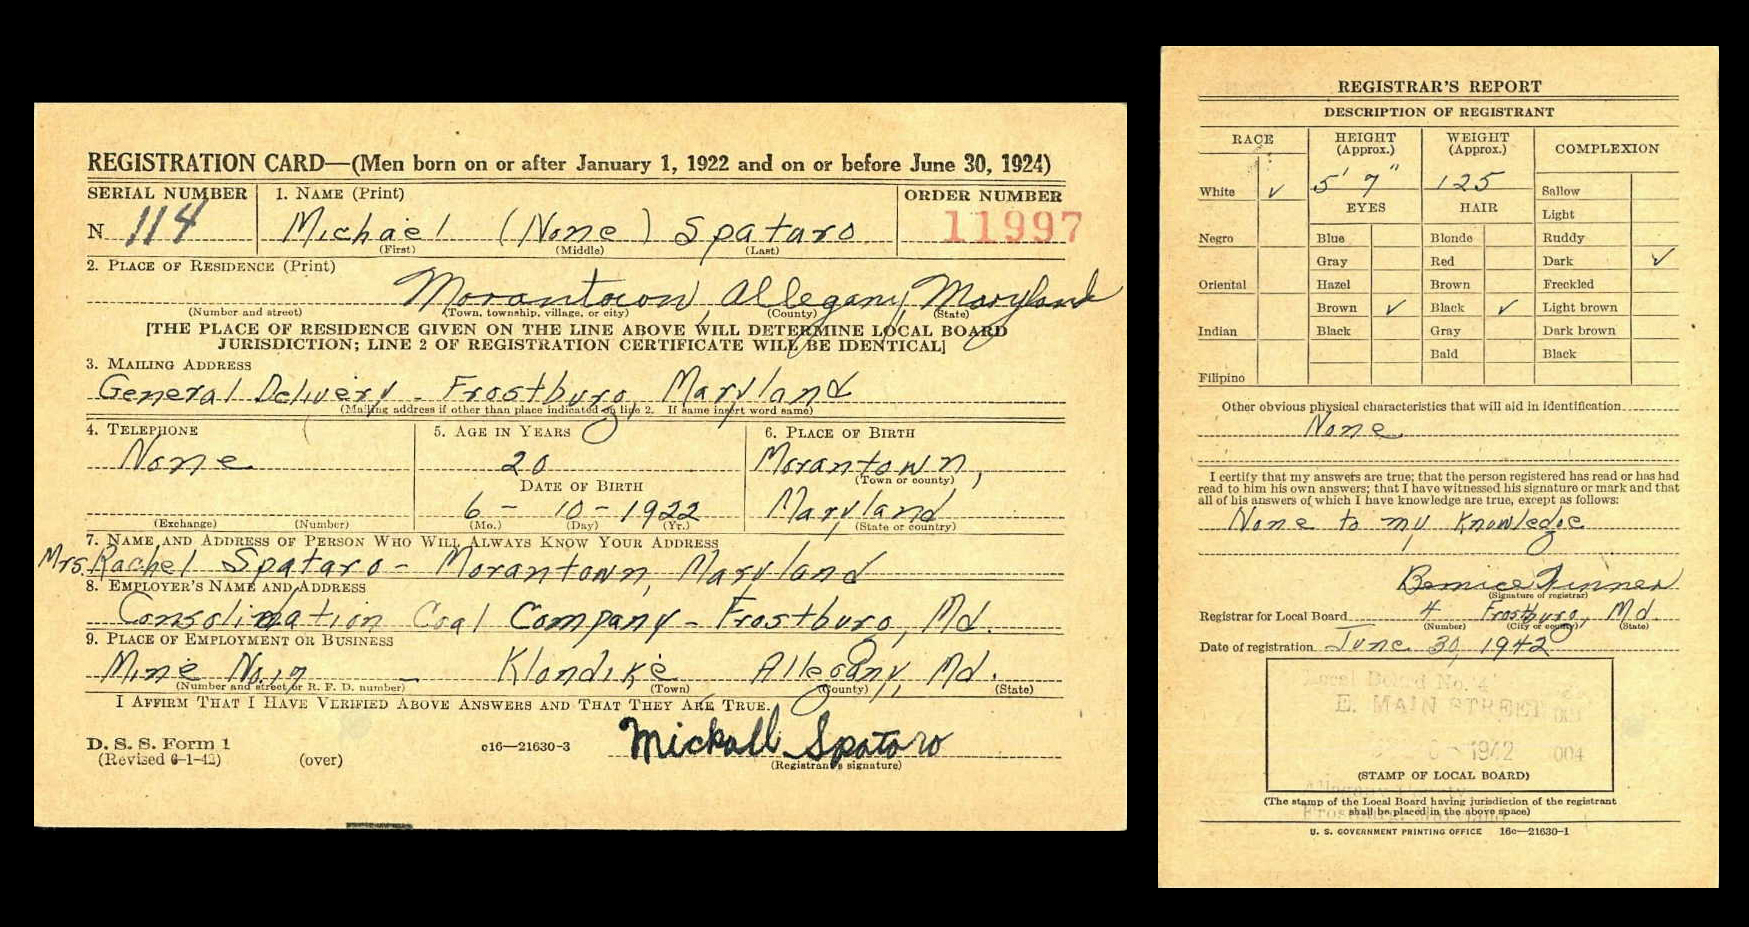 REGISTRATION CARD—(Men born on or after January 1, 1922 and on or before June 30, 1924)
SERIAL NUMBER 1. NAME (Print) ORDER NUMBER
N 114 Michael (None) Spataro 11997
(First) (Middle) (Last)
2. PLACE OF RESIDENCE (Print)
Morantown, Allegany, Maryland
(Number and street) (Town, township, village, or city) (County) (State)
[THE PLACE OF RESIDENCE GIVEN ON THE LINE ABOVE WILL DETERMINE LOCAL BOARD
JURISDICTION; LINE 2 OF REGISTRATION CERTIFICATE WILL BE IDENTICAL]
3. MAILING ADDRESS
General Delivery - Frostburg, Maryland
(Mailing address if other than place indicated on line 2. If same insert word same)
4. TELEPHONE 5. AGE IN YEARS 6. PLACE OF BIRTH
None 20 Morantown,
(Town or county)
DATE OF BIRTH
6 - 10 - 1922 Maryland
(Exchange) (Number) (Mo.) (Day) (Yr.) (State or country)
7. NAME AND ADDRESS OF PERSON WHO WILL ALWAYS KNOW YOUR ADDRESS
Mrs. Rachel Spataro - Morantown, Maryland
8. EMPLOYER'S NAME AND ADDRESS
Consolidation Coal Company - Frostburg, Md.
9. PLACE OF EMPLOYMENT OR BUSINESS
Mine No. 17 - Klondike, Allegany, Md.
(Number and street or R. F. D. number) (Town) (County) (State)
I AFFIRM THAT I HAVE VERIFIED ABOVE ANSWERS AND THAT THEY ARE TRUE.
D. S. S. Form 1 c16—21630-3 Mickall Spataro
(Revised 6-1-42) (over) (Registrant's signature)
REGISTRAR'S REPORT
DESCRIPTION OF REGISTRANT
RACE HEIGHT (Approx.) WEIGHT (Approx.) COMPLEXION
White ✓ 5' 7" 125 Sallow
EYES HAIR Light
Negro Blue Blonde Ruddy
Gray Red Dark ✓
Oriental Hazel Brown Freckled
Brown ✓ Black ✓ Light brown
Indian Black Gray Dark brown
Bald Black
Filipino
Other obvious physical characteristics that will aid in identification
None
I certify that my answers are true; that the person registered has read or has had
read to him his own answers; that I have witnessed his signature or mark and that
all of his answers of which I have knowledge are true, except as follows:
None to my Knowledge
Bernice
(Signature of registrar)
Registrar for Local Board 4 Frostburg, Md.
(Number) (City or county) (State)
Date of registration June 30, 1942
Local Board No. 4
E. MAIN STREET
1942 004
(STAMP OF LOCAL BOARD)
(The stamp of the Local Board having jurisdiction of the registrant
shall be placed in the above space)
U. S. GOVERNMENT PRINTING OFFICE 16c—21630-1